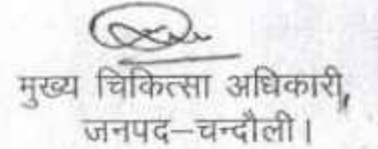 मुख्य चिकित्सा अधिकारी,
जनपद–चन्दौली।